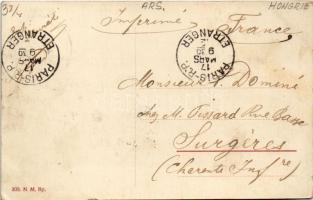 37/- ARS. HONGRIE
Imprimé France
PARIS R.P.
ETRANGER
17
MARS
9
PARIS R.P.
ETRANGER
17
MARS
9
Monsieur L. Dominé
chez M. Pissard Rue Basse
Surgères
(Charente Infre)
303. N. M. Bp.